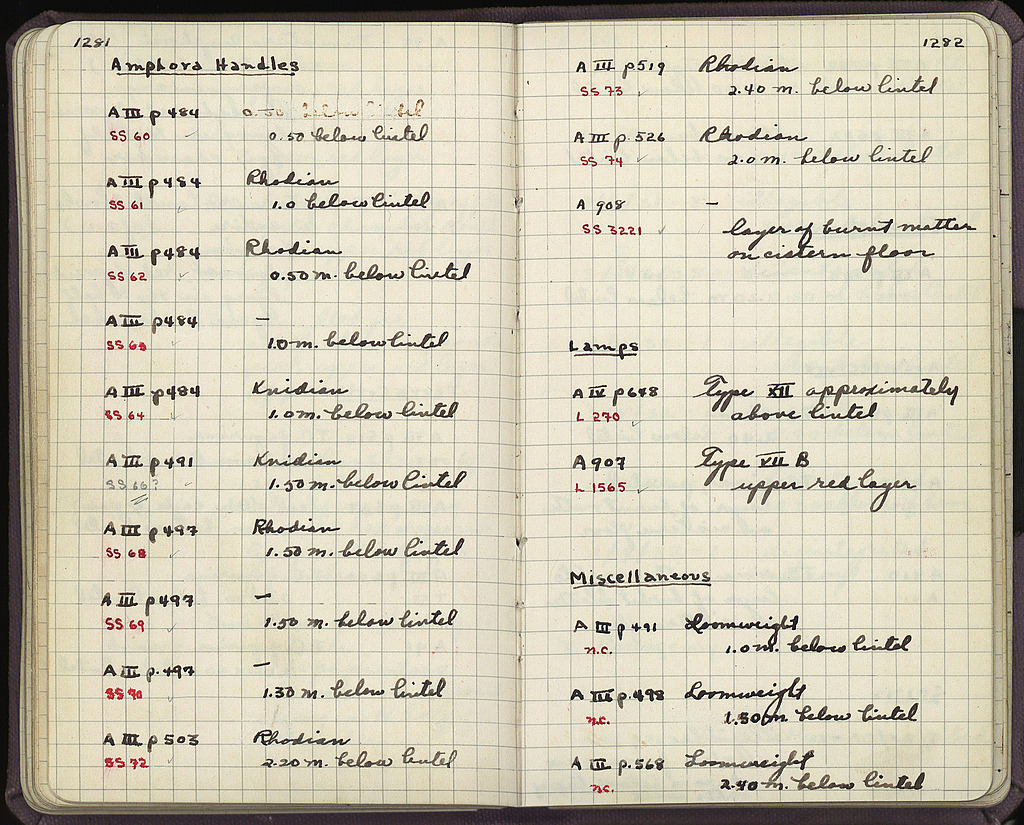 1281
Amphora Handles
A III p 484
0.50 below lintel
SS 60 0.50 below lintel
A III p 484 Rhodian
SS 61 1.0 below lintel
A III p 484 Rhodian
SS 62 0.50 m. below lintel
A III p 484 —
SS 63 1.0 m. below lintel
A III p 484 Knidian
SS 64 1.0 m. below lintel
A III p 491 Knidian
SS 66? 1.50 m. below lintel
A III p 497 Rhodian
SS 68 1.50 m. below lintel
A III p 497 —
SS 69 1.50 m. below lintel
A III p. 497 —
SS 70 1.30 m. below lintel
A III p 503 Rhodian
SS 72 2.20 m. below lintel
1282
A III p 519 Rhodian
SS 73 2.40 m. below lintel
A III p. 526 Rhodian
SS 74 2.0 m. below lintel
A 908 —
SS 3221 layer of burnt matter
on cistern floor
Lamps
A IV p 678 Type XII approximately
L 270 above lintel
A 907 Type VII B
L 1565 upper red layer
Miscellaneous
A III p 491 Loomweight
n.c. 1.0 m. below lintel
A III p. 498 Loomweight
n.c. 1.50 m below lintel
A III p. 568 Loomweight
n.c. 2.40 m. below lintel